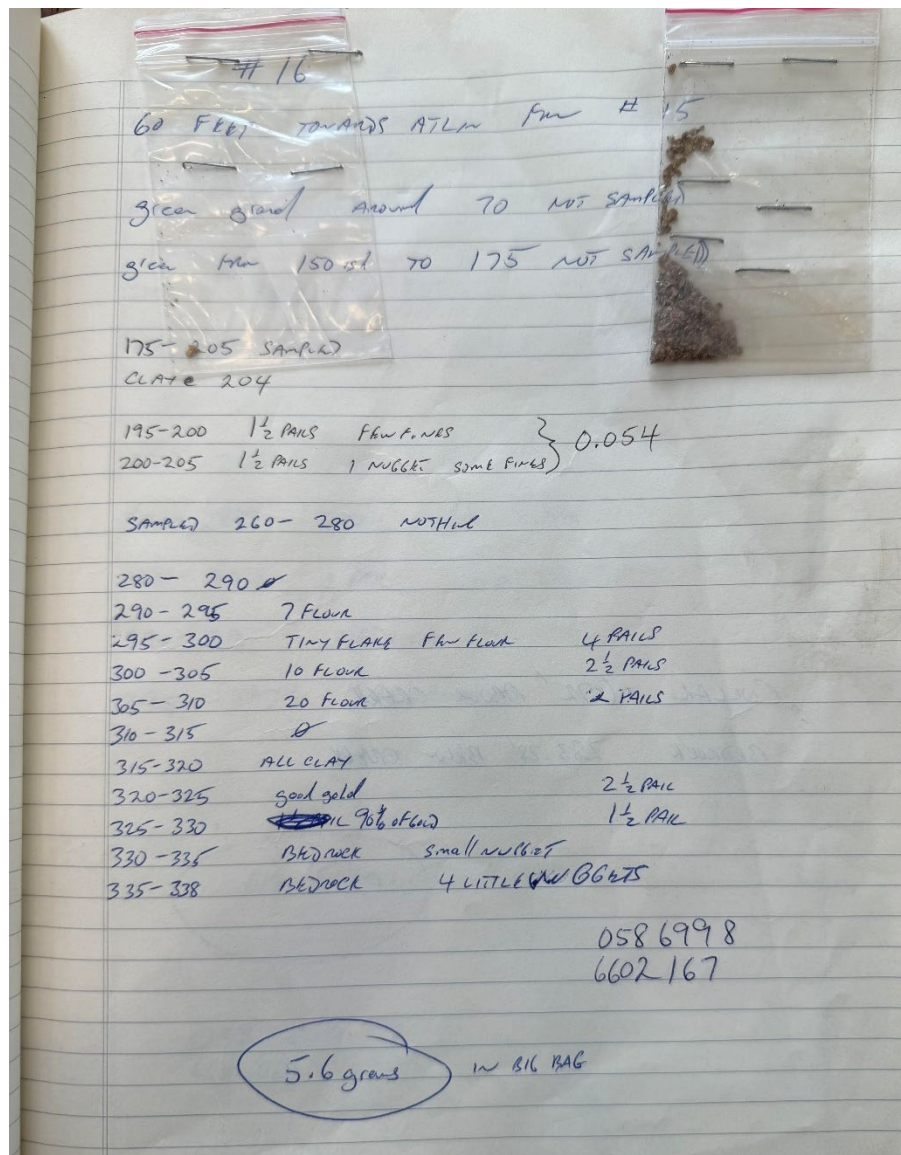 # 16
60 FEET TOWARDS ATLIN FROM # 15
green gravel Around 70 NOT SAMPLED
green FROM 150 ish TO 175 NOT SAMPLED
175-205 SAMPLED
CLAY @ 204
195-200 1 1/2 PAILS FEW FINES } 0.054
200-205 1 1/2 PAILS 1 NUGGET SOME FINES
SAMPLED 260-280 NOTHING
280-290 Ø
290-295 7 FLOUR
295-300 TINY FLAKE FEW FLOUR 4 PAILS
300-305 10 FLOUR 2 1/2 PAILS
305-310 20 FLOUR 2 PAILS
310-315 Ø
315-320 ALL CLAY
320-325 good gold 2 1/2 PAIL
325-330 90% OF GOLD 1 1/2 PAIL
330-335 BEDROCK Small NUGGET
335-338 BEDROCK 4 LITTLE NUGGETS
0586998
6602167
5.6 grams IN BIG BAG